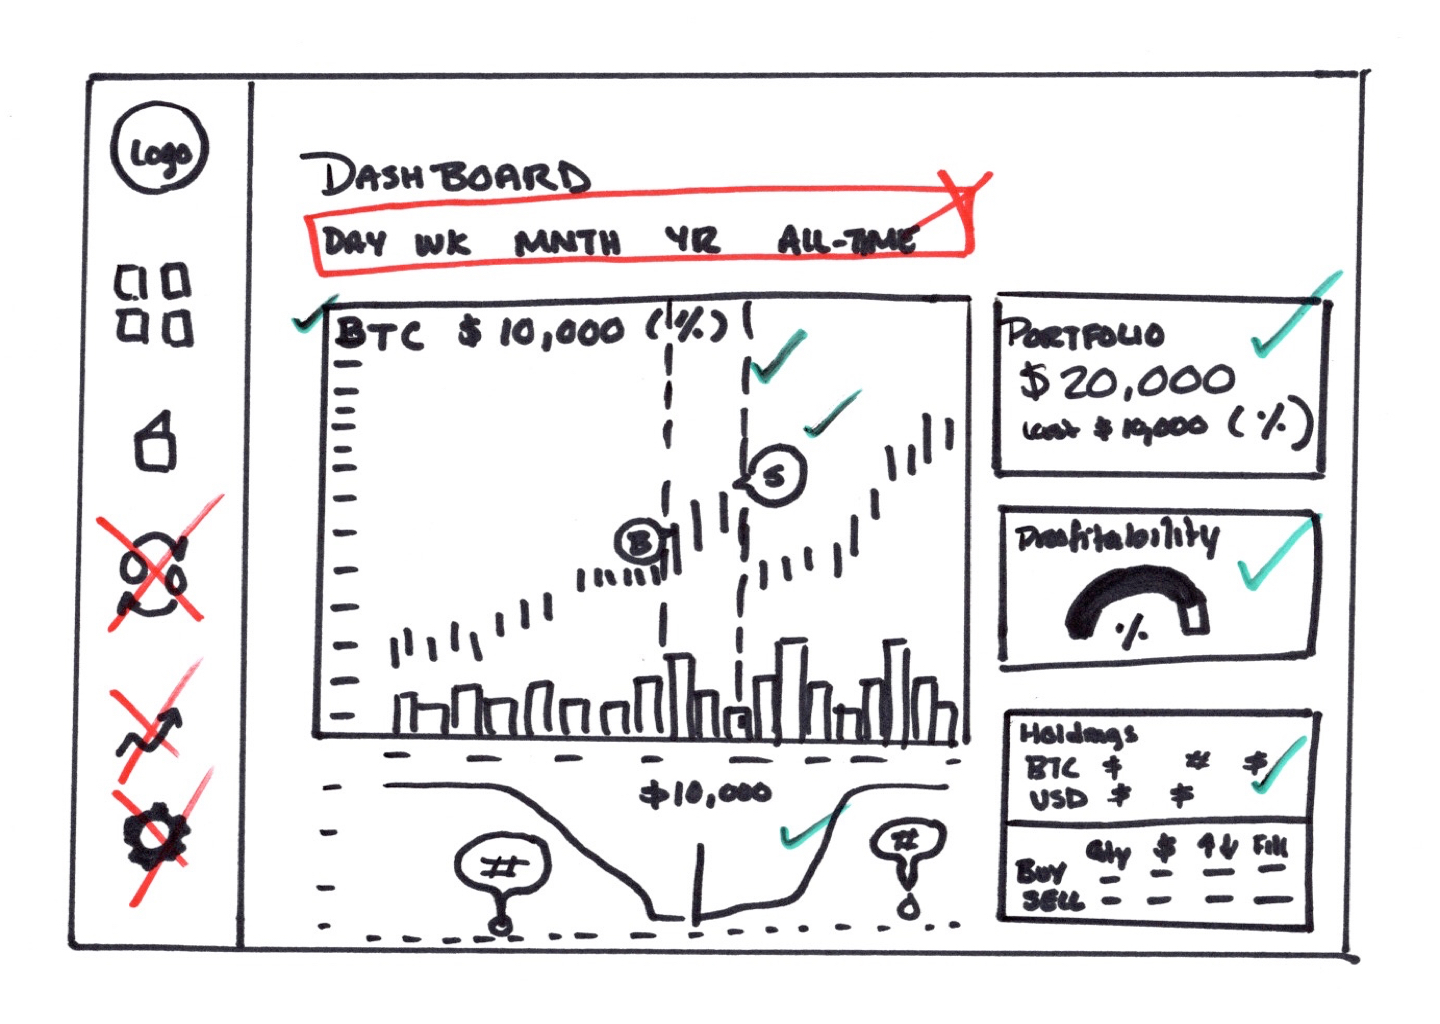 Logo
DASHBOARD
DAY WK MNTH YR ALL-TIME
BTC $10,000 (%)
S
B
$10,000
#
#
PORTFOLIO
$20,000
$10,000 (%)
Profitability
%
Holdings
BTC $ # $
USD $ $
Qty $ ↑↓ Fill
BUY – – – –
SELL – – – –